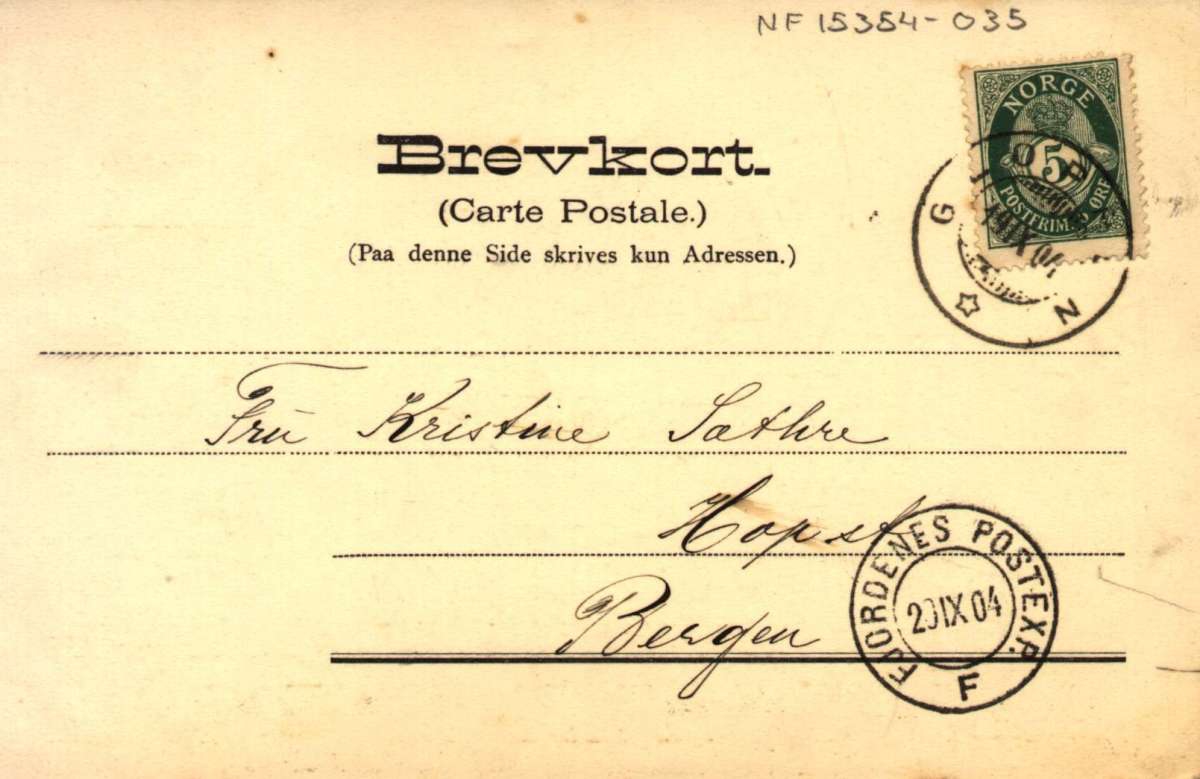 NF 15354-035
NORGE
5
POSTFRIM. 5 ØRE
Brevkort.
(Carte Postale.)
(Paa denne Side skrives kun Adressen.)
19 IX 04
Frü Kristine Sæthre
Hop st
Bergen
FJORDENES POSTEXP.
20 IX 04
F